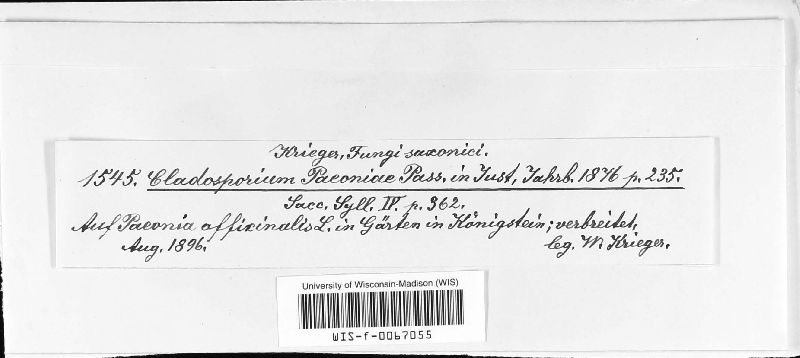 Krieger, Fungi saxonici.
1545. Cladosporium Paeoniae Pass. in Just, Jahrb. 1876 p. 235.
Sacc. Syll. IV. p. 362.
Auf Paeonia officinalis L. in Gärten in Königstein; verbreitet,
Aug. 1896.
leg. W. Krieger.
University of Wisconsin-Madison (WIS)
WIS-f-0067055